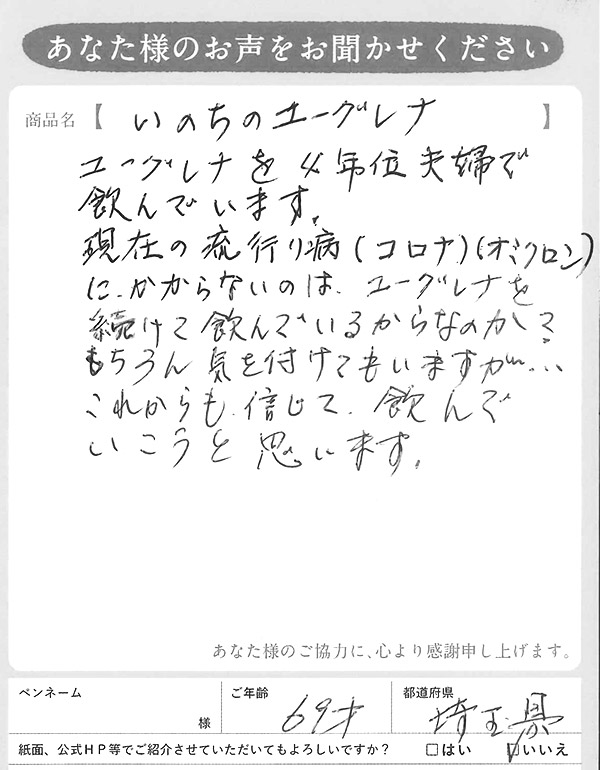 あなた様のお声をお聞かせください
商品名【 いのちのユーグレナ 】
ユーグレナを4年位夫婦で
飲んでいます。
現在の流行り病(コロナ)(オミクロン)
に、かからないのは、ユーグレナを
続けて飲んでいるからなのかしら?
もちろん気を付けてもいますが…
これからも、信じて、飲んで
いこうと思います。
あなた様のご協力に、心より感謝申し上げます。
ペンネーム 様 ご年齢 69才 都道府県 埼玉県
紙面、公式HP等でご紹介させていただいてもよろしいですか? □はい ☑いいえ